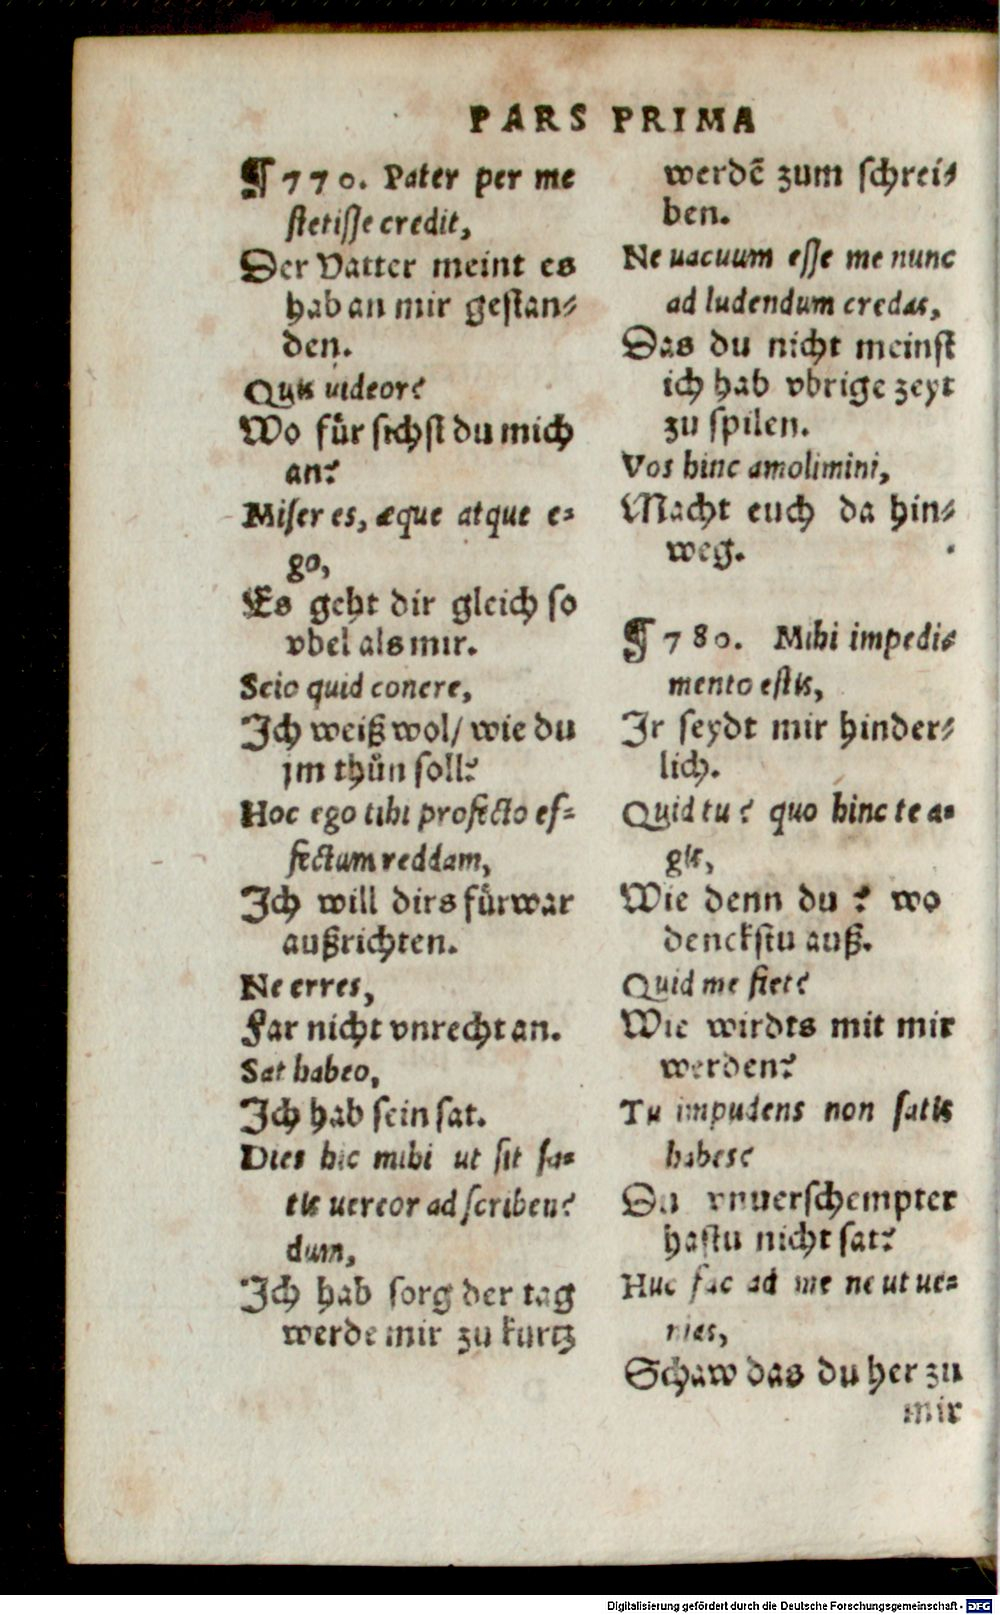 PARS PRIMA
¶ 770. Pater per me
stetisse credit,
Der Vatter meint es
hab an mir gestan⸗
den.
Quis uideor?
Wo fuͤr sichst du mich
an?
Miser es, æque atque e⸗
go,
Es geht dir gleich so
vbel als mir.
Scio quid conere,
Ich weiß wol/ wie du
jm thuͦn soll?
Hoc ego tibi profecto ef⸗
fectum reddam,
Ich will dirs fuͤrwar
außrichten.
Ne erres,
Far nicht vnrecht an.
Sat habeo,
Ich hab sein sat.
Dies hic mihi ut sit sa⸗
tis uereor ad scriben⸗
dum,
Ich hab sorg der tag
werde mir zu kurtz
werdē zum schrei⸗
ben.
Ne uacuum esse me nunc
ad ludendum credas,
Das du nicht meinst
ich hab vbrige zeyt
zu spilen.
Vos hinc amolimini,
Macht euch da hin⸗
weg.
¶ 780. Mihi impedi⸗
mento estis,
Ir seydt mir hinder⸗
lich.
Quid tu? quo hinc te a⸗
gis,
Wie denn du? wo
denckstu auß.
Quid me fiet?
Wie wirdts mit mir
werden?
Tu impudens non satis
habes?
Du vnuerschempter
hastu nicht sat?
Huc fac ad me ne ut ue⸗
nias,
Schaw das du her zu
mir
Digitalisierung gefördert durch die Deutsche Forschungsgemeinschaft - DFG